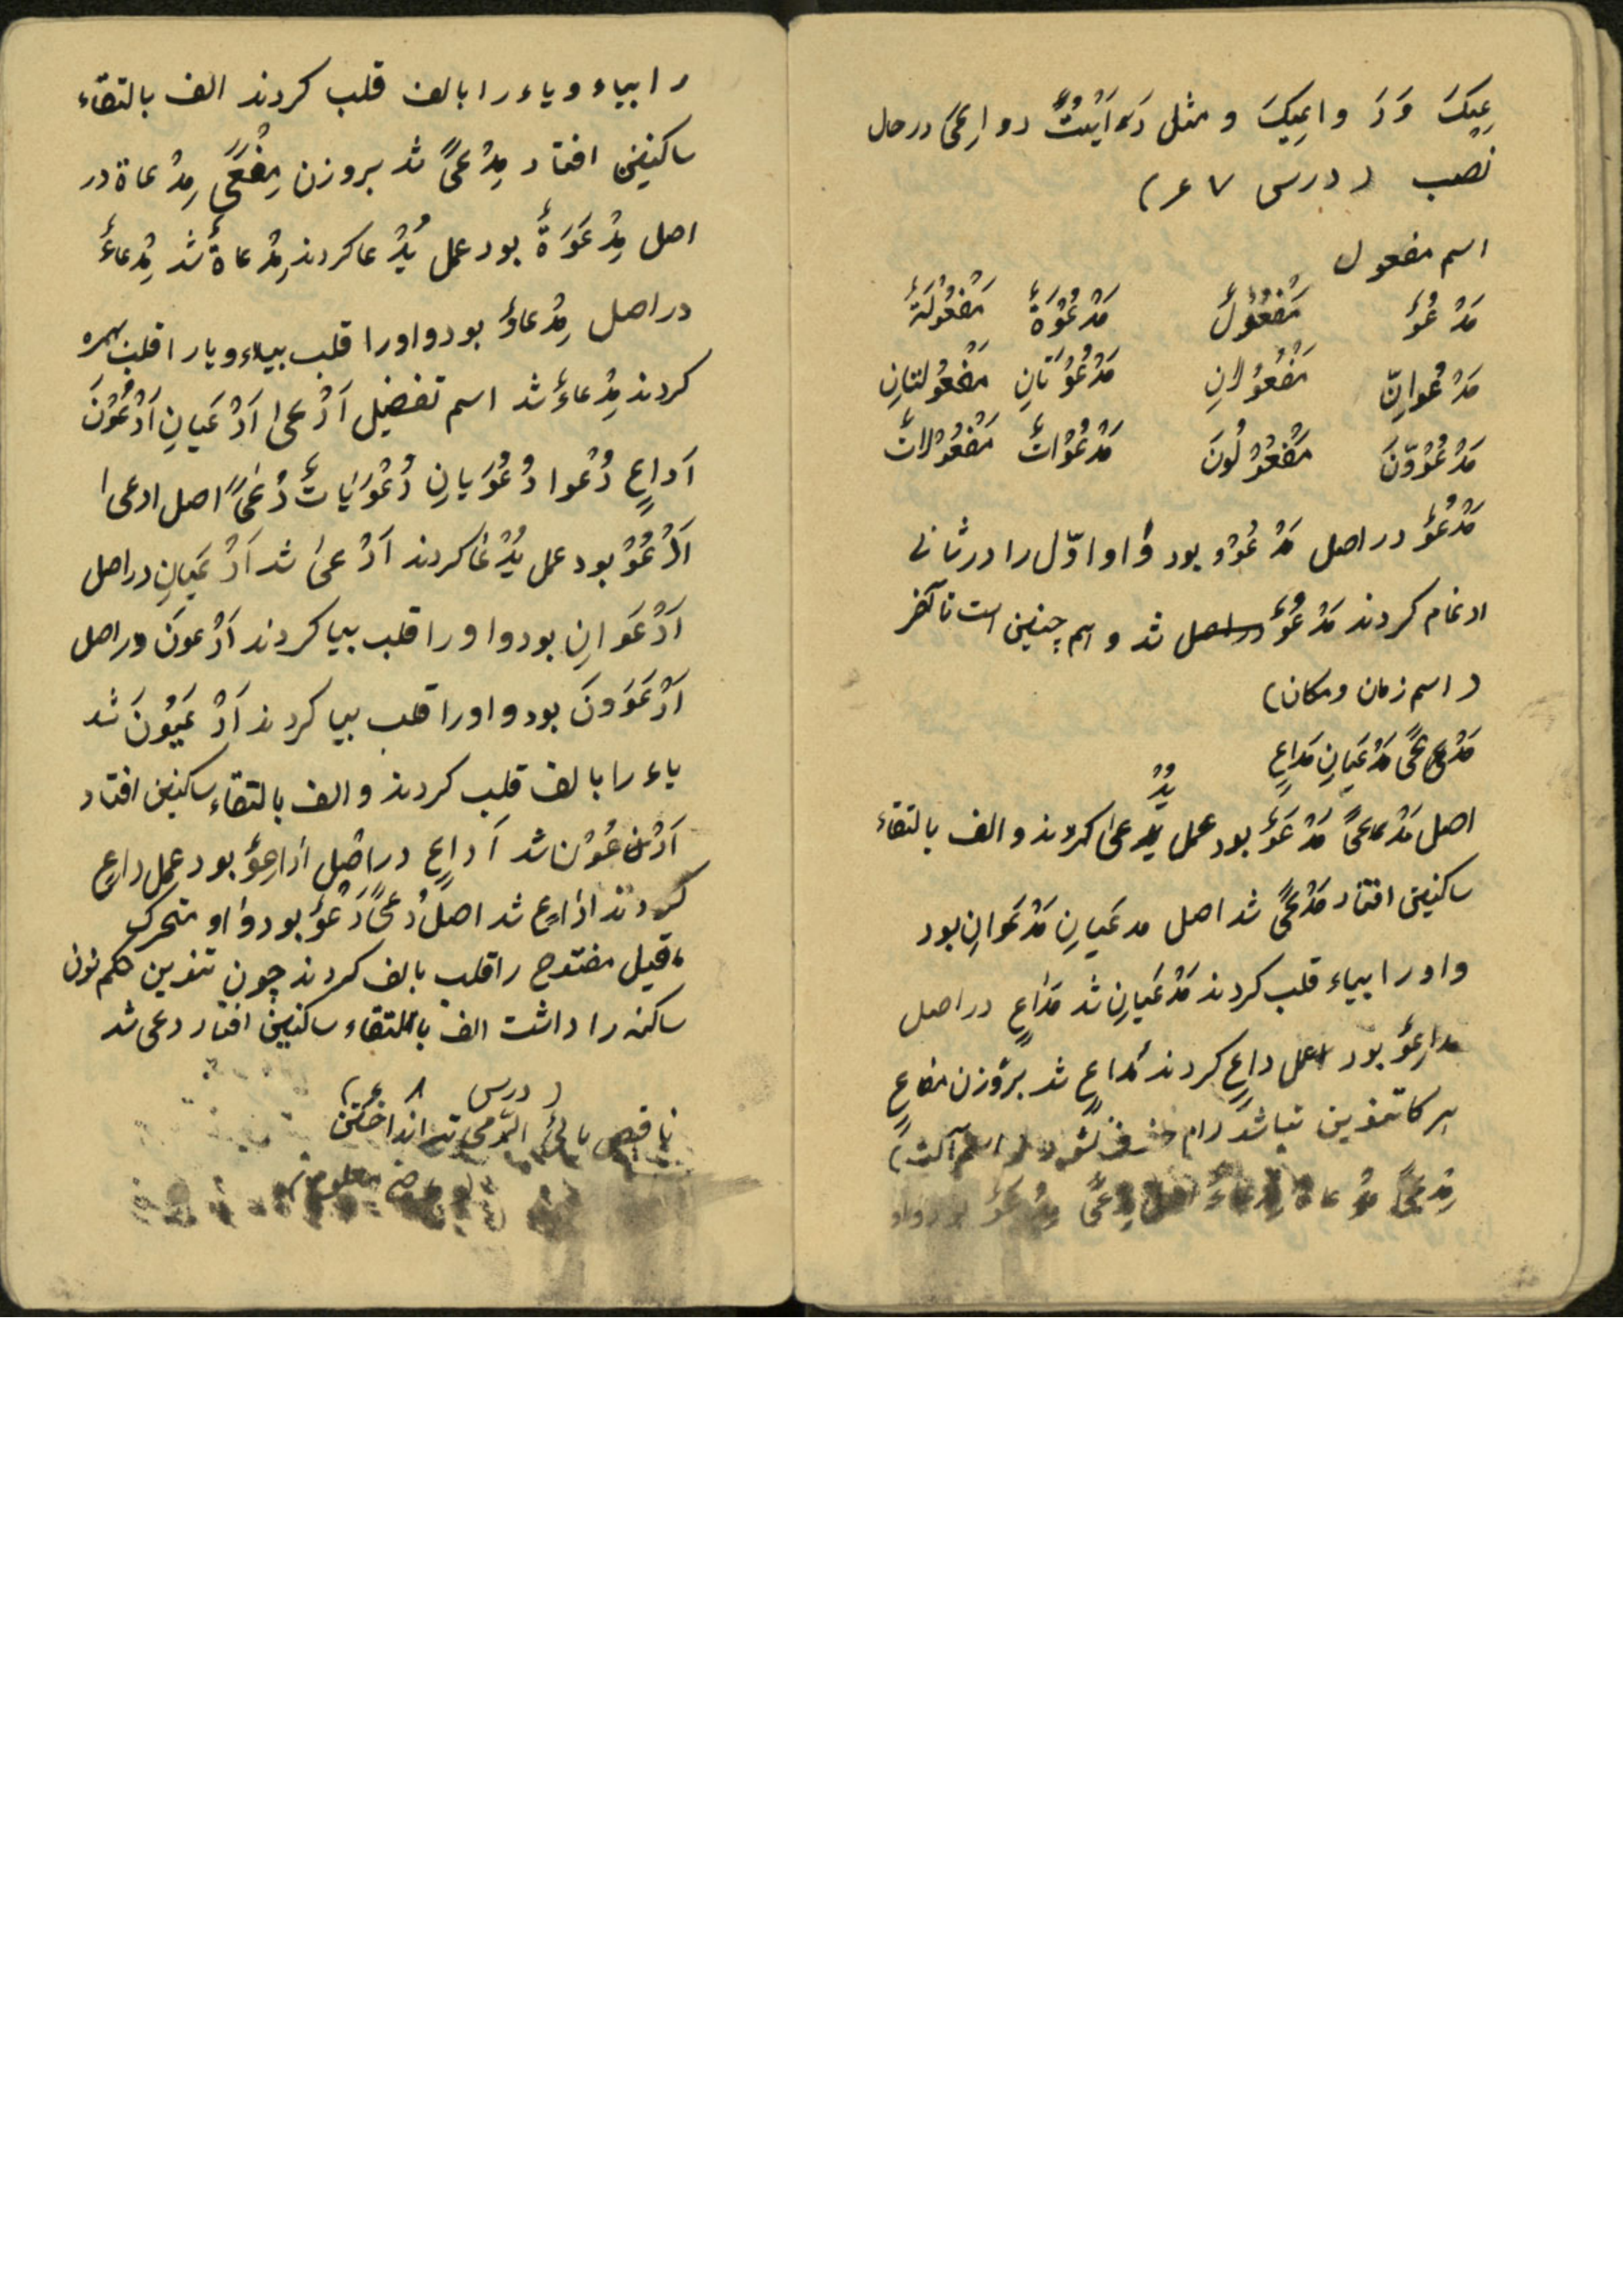 عِیَکَ وَدَ واعِیکَ و مثل رَءَاَیْتُ دواعِیَ در حال
نصب (درس ۴۷)
اسم مفعول
مَدْعُوٌّ مَفْعُوْلٌ مَدْعُوَّةٌ مَفْعُوْلَةٌ
مَدْعُوانِّ مَفْعُوْلانِ مَدْعُوَّتانِ مَفْعُولتانِ
مَدْعُوْوّنَ مَفْعُوْلُونَ مَدْعُوْاتٌ مَفْعُوْلاتٌ
مَدْعُوٌّ در اصل مَدْعُوْوٌ بود واو اوّل را در ثانی
ادغام کردند مَدْعُوٌّ شد و هم چنین است تا آخر
(اسم زمان و مکان)
مَدْعیً مَدْعَیانِ مَداعٍ
اصل مَدْعیً مَدْعَوٌ بود عمل یُدْعیٰ کردند و الف بالتقاء
ساکنین افتاد مَدْعیً شد اصل مدعَیانِ مَدْعَوانِ بود
واو را بیاء قلب کردند مَدْعَیانِ شد مَداعٍ در اصل
مداعِوٌ بود عمل داعٍ کردند مَداعٍ شد بروزن مفاعٍ
هر کا تنوین نباشد لام حذف نشود (اسم آلت)
مِدْعیً مِدْعاةٌ مِدْعاءٌ اصل مِدْعیً مِدْعَوٌ بود واو
را بیاء و یاء را بالف قلب کردند الف بالتقاء
ساکنین افتاد مِدْعیً شد بروزن مِفْعیً مِدْعاة در
اصل مِدْعَوَةٌ بود عمل یُدْعا کردند مِدْعاةٌ شد مِدْعاءٌ
در اصل مِدْعاوٌ بود واو را قلب بیاء و یا را قلب بهمزه
کردند مِدْعاءٌ شد اسم تفضیل اَدْعیٰ اَدْعَیانِ اَدْعَوْنَ
اَداعٍ دُعْوا دُعْوَیانِ دُعْوَیاتٌ دُعیً اصل ادعیٰ
اَدْعَوُ بود عمل یُدْعا کردند اَدْعیٰ شد اَدْعَیانِ در اصل
اَدْعَوانِ بود واو را قلب بیا کردند اَدْعونَ در اصل
اَدْعَوَونَ بود واو را قلب بیا کردند اَدْعَیُونَ شد
یاء را بالف قلب کردند و الف بالتقاء ساکنین افتاد
اَدْعَوْن شد اَداعٍ در اصل اَداعِوٌ بود عمل داعٍ
کردند اداعٍ شد اصل دُعیً دُعَوٌ بود واو متحرک
ماقبل مفتوح را قلب بالف کردند چون تنوین حکم نون
ساکنه را داشت الف بالتقاء ساکنین افتاد دعی شد
(درس ۴۸)
ناقص یائی الرّمی تیر انداختن
معلوم